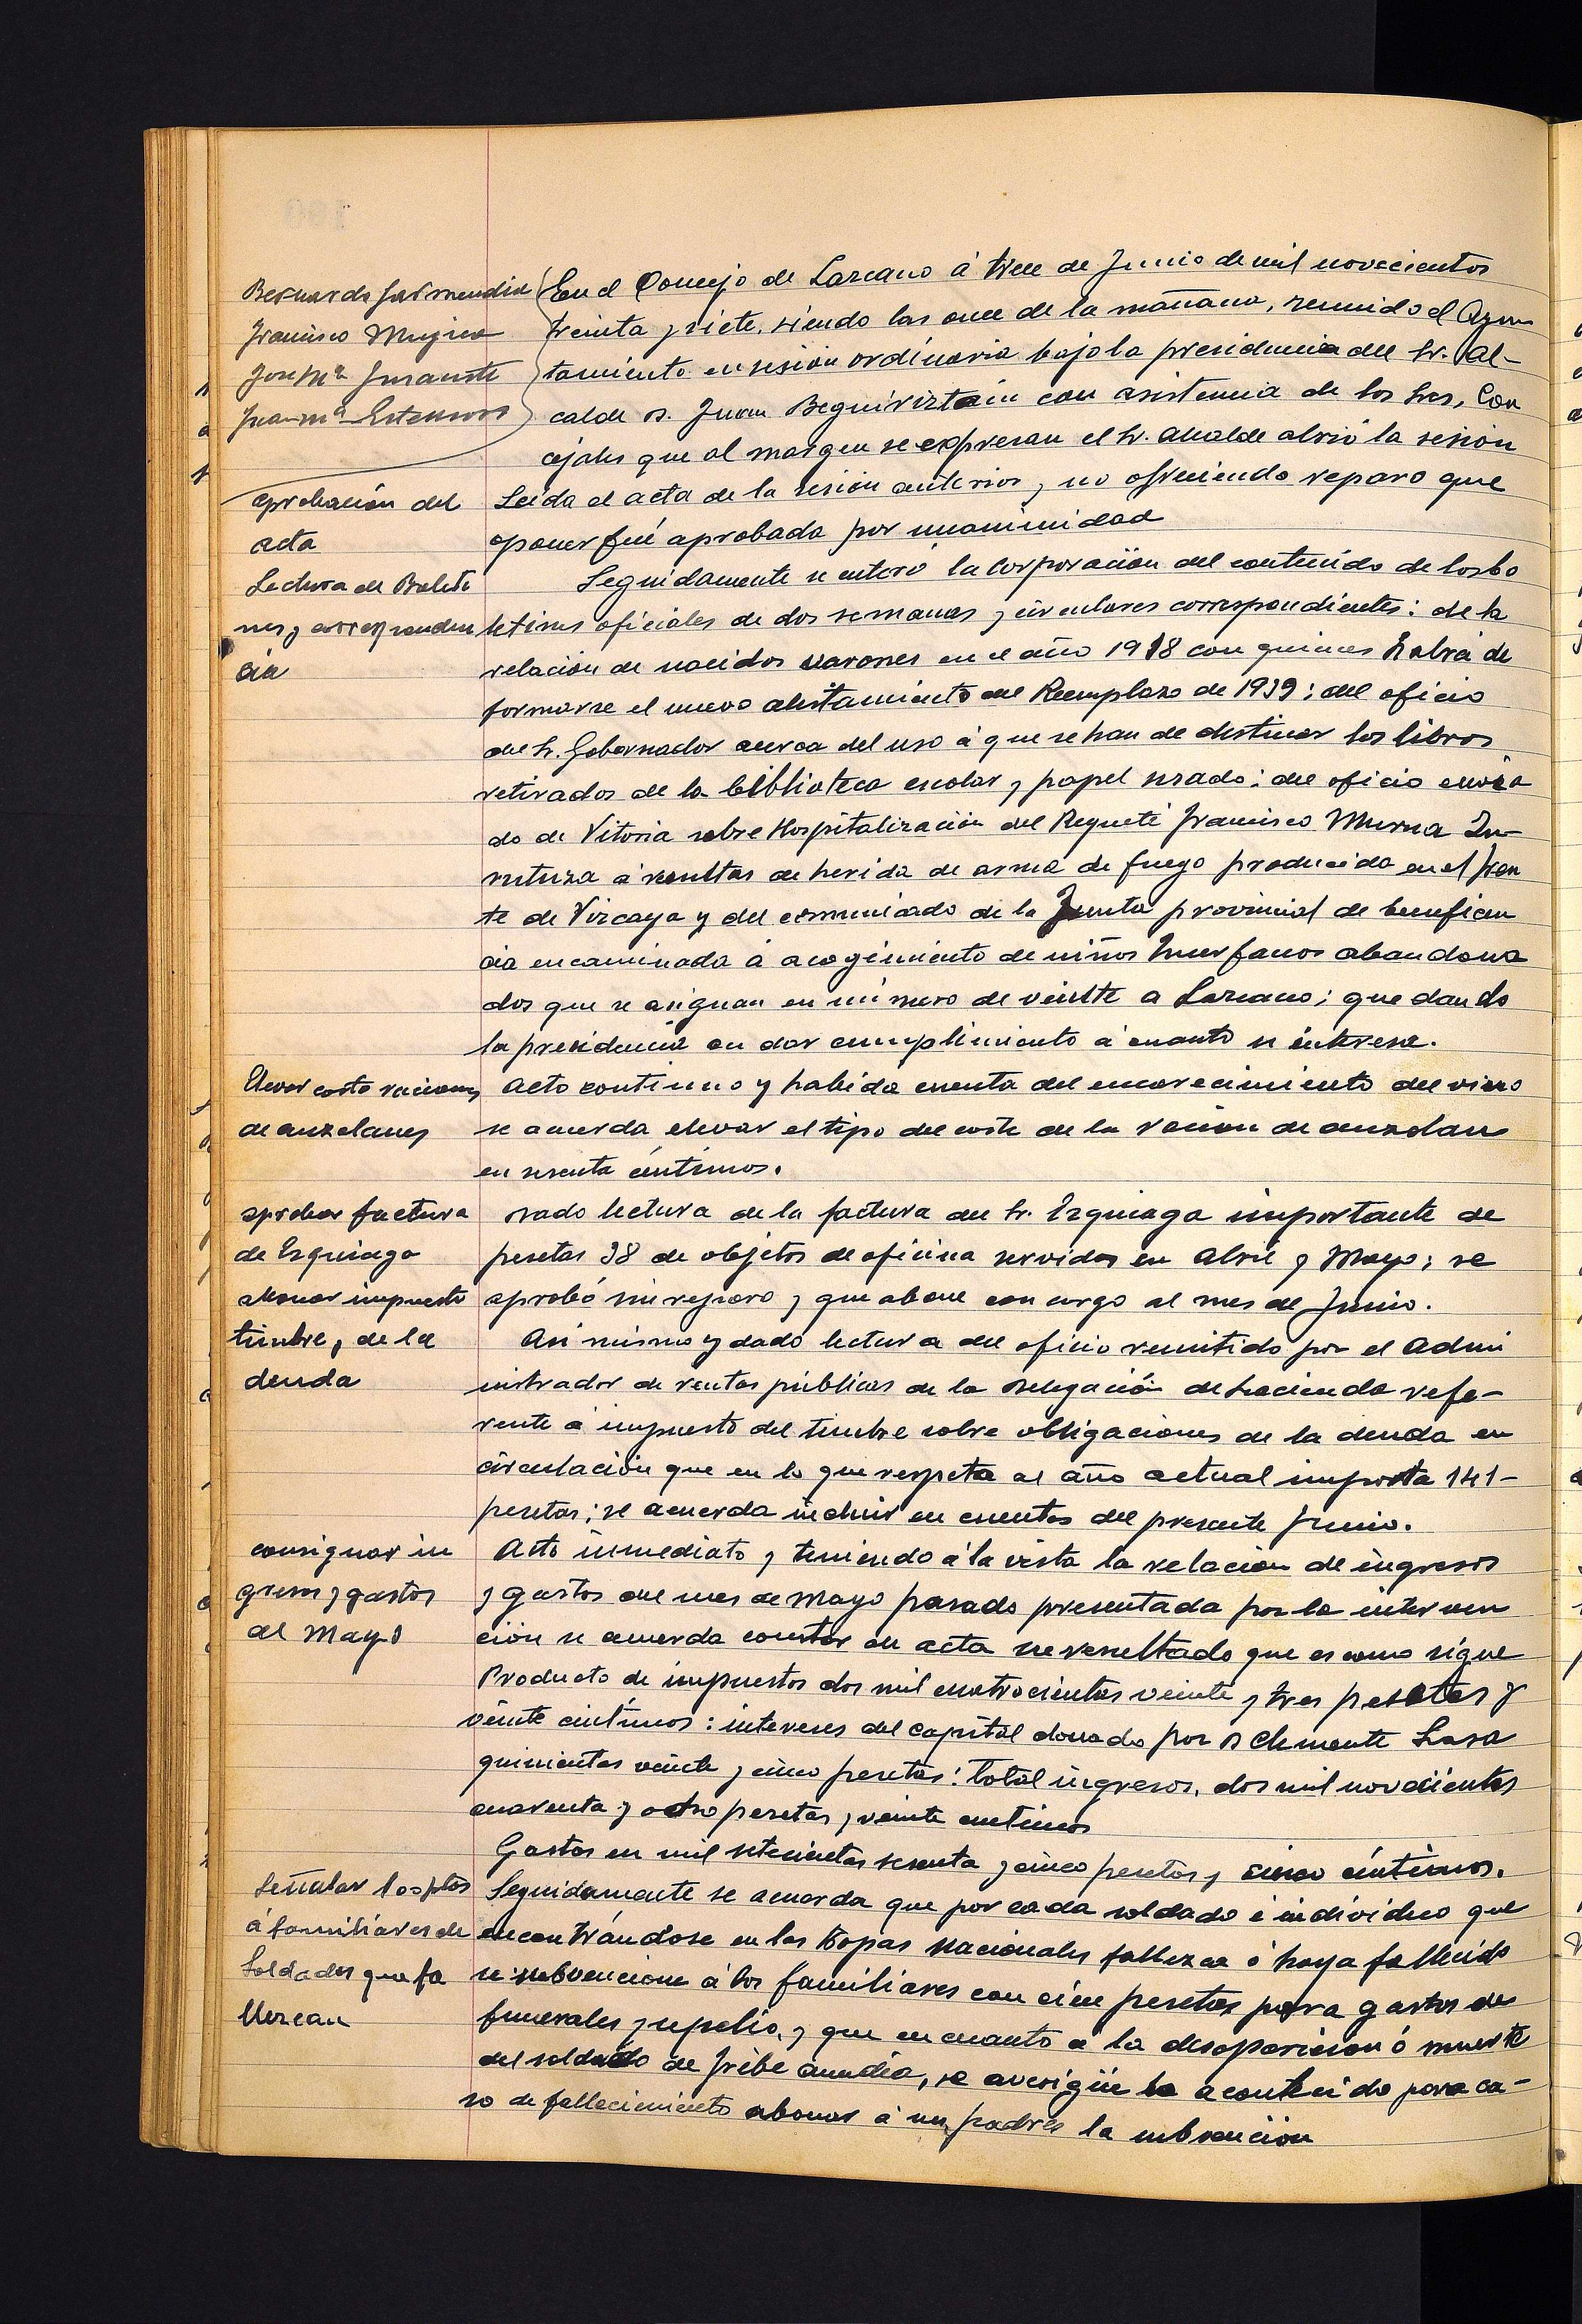 Bernardo Garmendia
Francisco Mujica
José Mª
Juan Mª
En el Concejo de Lazcano á trece de Junio de mil novecientos
treinta y siete, siendo las once de la mañana, reunido el Ayun
tamiento en sesión ordinaria bajo la presidencia del Sr. Al-
calde D. Juan Beguiriztain con asistencia de los Sres. Con
cejales que al margen se expresan el Sr. Alcalde abrió la sesión
aprobación del
acta
Leida el acta de la sesión anterior y no ofreciendo reparo que
oponer fué aprobada por unanimidad
Lectura de Boleti
nes y correspondен
cia
Seguidamente se enteró la Corporación del contenido de los bo
letines oficiales de dos semanas y circulares correspondientes: de la
relación de nacidos varones en el año 1918 con quienes habrá de
formarse el nuevo alistamiento del Reemplazo de 1939: del oficio
del Sr. Gobernador acerca del uso á que se han de destinar los libros
retirados de la biblioteca escolar y papel usado: del oficio envia
do de Vitoria sobre Hospitalización del Requeté Francisco Murua In-
á resultas de herida de arma de fuego producida en el fren
te de Vizcaya y del comunicado de la Junta provincial de beneficen
cia encaminada á acogimiento de niños huerfanos abandona
dos que se asignan en número de veinte a Lazcano; quedando
la presidencia en dar cumplimiento á cuanto se interesa.
Elevar costo raciones
de auzolanes
Acto continuo y habida cuenta del encarecimiento del vino
se acuerda elevar el tipo del coste de la ración de auzolan
en sesenta céntimos.
aprobar factura
de Ezquiaga
Dado lectura de la factura del Sr. Ezquiaga importante de
pesetas 38 de objetos de oficina servidos en Abril y Mayo; se
aprobó sin reparo y que abone con cargo al mes de Junio.
abonar impuesto
timbre, de la
deuda
Asi mismo y dado lectura del oficio remitido por el Admi
nistrador de rentas públicas de la Delegación de hacienda refe-
rente á impuesto del timbre sobre obligaciones de la deuda en
circulación que en lo que respeta al año actual importa 141-
pesetas; se acuerda incluir en cuentas del presente Junio.
consignar in
gresos y gastos
de Mayo
Acto inmediato y teniendo á la vista la relación de ingresos
y gastos del mes de Mayo pasado presentada por la interven
ción se acuerda constar en acta su resultado que es como sigue
Producto de impuestos dos mil cuatrocientas veinte y tres pesetas y
veinte céntimos: intereses del capital donado por D Clemente Lasa
quinientas veinte y cinco pesetas: total ingresos, dos mil novecientas
cuarenta y ocho pesetas, veinte centimos
Gastos en mil setecientas sesenta y cinco pesetas y cinco céntimos.
Señalar 100 ptas
á familiares de
Soldados que fa
llezcan
Seguidamente se acuerda que por cada soldado é individuo que
encontrándose en las tropas Nacionales fallezca ó haya fallecido
se subvencione á los familiares con cien pesetas para gastos de
funerales y sepelio, y que en cuanto a la desaparición ó muerte
del soldado de Iribe aundia, se averigüe lo acontecido para ca-
so de fallecimiento abonar á sus padres la subvención